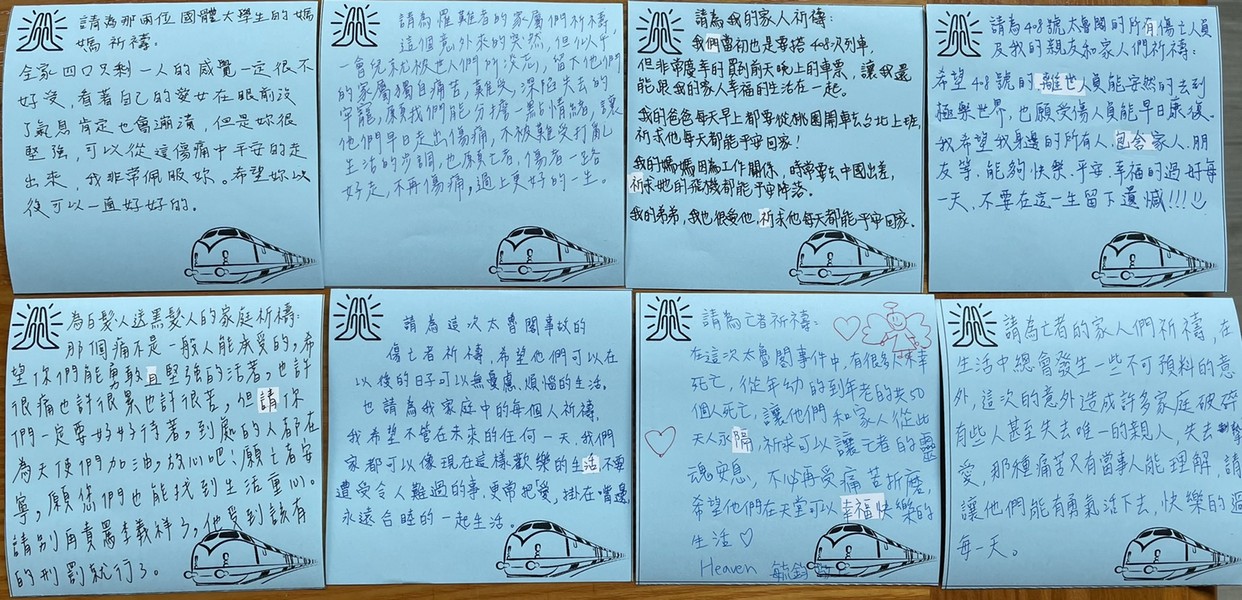 請為那兩位國體大學生的媽
媽祈禱。
全家四口只剩一人的感覺一定很不
好受，看著自己的愛女在眼前沒
了氣息肯定也會崩潰，但是妳很
堅強，可以從這傷痛中平安的走
出來，我非常佩服妳。希望妳以
後可以一直好好的。
請為罹難者的家屬們祈禱，
這個意外來的突然，但似乎
一會兒就被世人們所忘，留下他們
的家屬獨自痛苦，難受，深陷失去的
牢籠，願我們能分擔一點情緒，讓
他們早日走出傷痛，不被難受打亂
生活的步調，也願亡者，傷者一路
好走，不再傷痛，過上更好的一生。
請為我的家人祈禱：
我們當初也是要搭408次列車，
但非常慶幸的買到前天晚上的車票，讓我還
能跟我的家人幸福的生活在一起。
我的爸爸每天早上都要從桃園開車去台北上班，
祈求他每天都能平安回家！
我的媽媽因為工作關係，時常要去中國出差，
祈求她的飛機都能平安降落。
我的弟弟，我也很愛他，祈求他每天都能平安回家。
請為408號太魯閣的所有傷亡人員
及我的親友和家人們祈禱：
希望408號的離世人員能安然的去到
極樂世界，也願受傷人員能早日康復。
我希望我身邊的所有人，包含家人、朋
友等，能夠快樂、平安、幸福的過好每
一天，不要在這一生留下遺憾!!!
為白髮人送黑髮人的家庭祈禱：
那個痛不是一般人能承受的，希
望你們能勇敢且堅強的活著，也許
很痛也許很累也許很苦，但請你
們一定要好好待著，到處的人都在
為天使們加油，放心吧！願亡者安
寧，願你們也能找到生活重心。
請別再責罵李義祥了，他受到該有
的刑罰就行了。
請為這次太魯閣事故的
傷亡者祈禱，希望他們可以在
以後的日子可以無憂慮、煩惱的生活。
也請為我家庭中的每個人祈禱，
我希望不管在未來的任何一天，我們
家都可以像現在這樣歡樂的生活不要
遭受令人難過的事，更常把愛，掛在嘴邊
永遠合睦的一起生活。
請為亡者祈禱：
在這次太魯閣事件中，有很多人不幸
死亡，從年幼的到年老的共50
個人死亡，讓他們和家人從此
天人永隔，祈求可以讓亡者的靈
魂安息，不必再受痛苦折磨，
希望他們在天堂可以幸福快樂的
生活♡
Heaven 毓鈞
請為亡者的家人們祈禱，在
生活中總會發生一些不可預料的意
外，這次的意外造成許多家庭破碎
有些人甚至失去唯一的親人，失去摯
愛，那種痛苦又有當事人能理解，請
讓他們能有勇氣活下去，快樂的過
每一天。